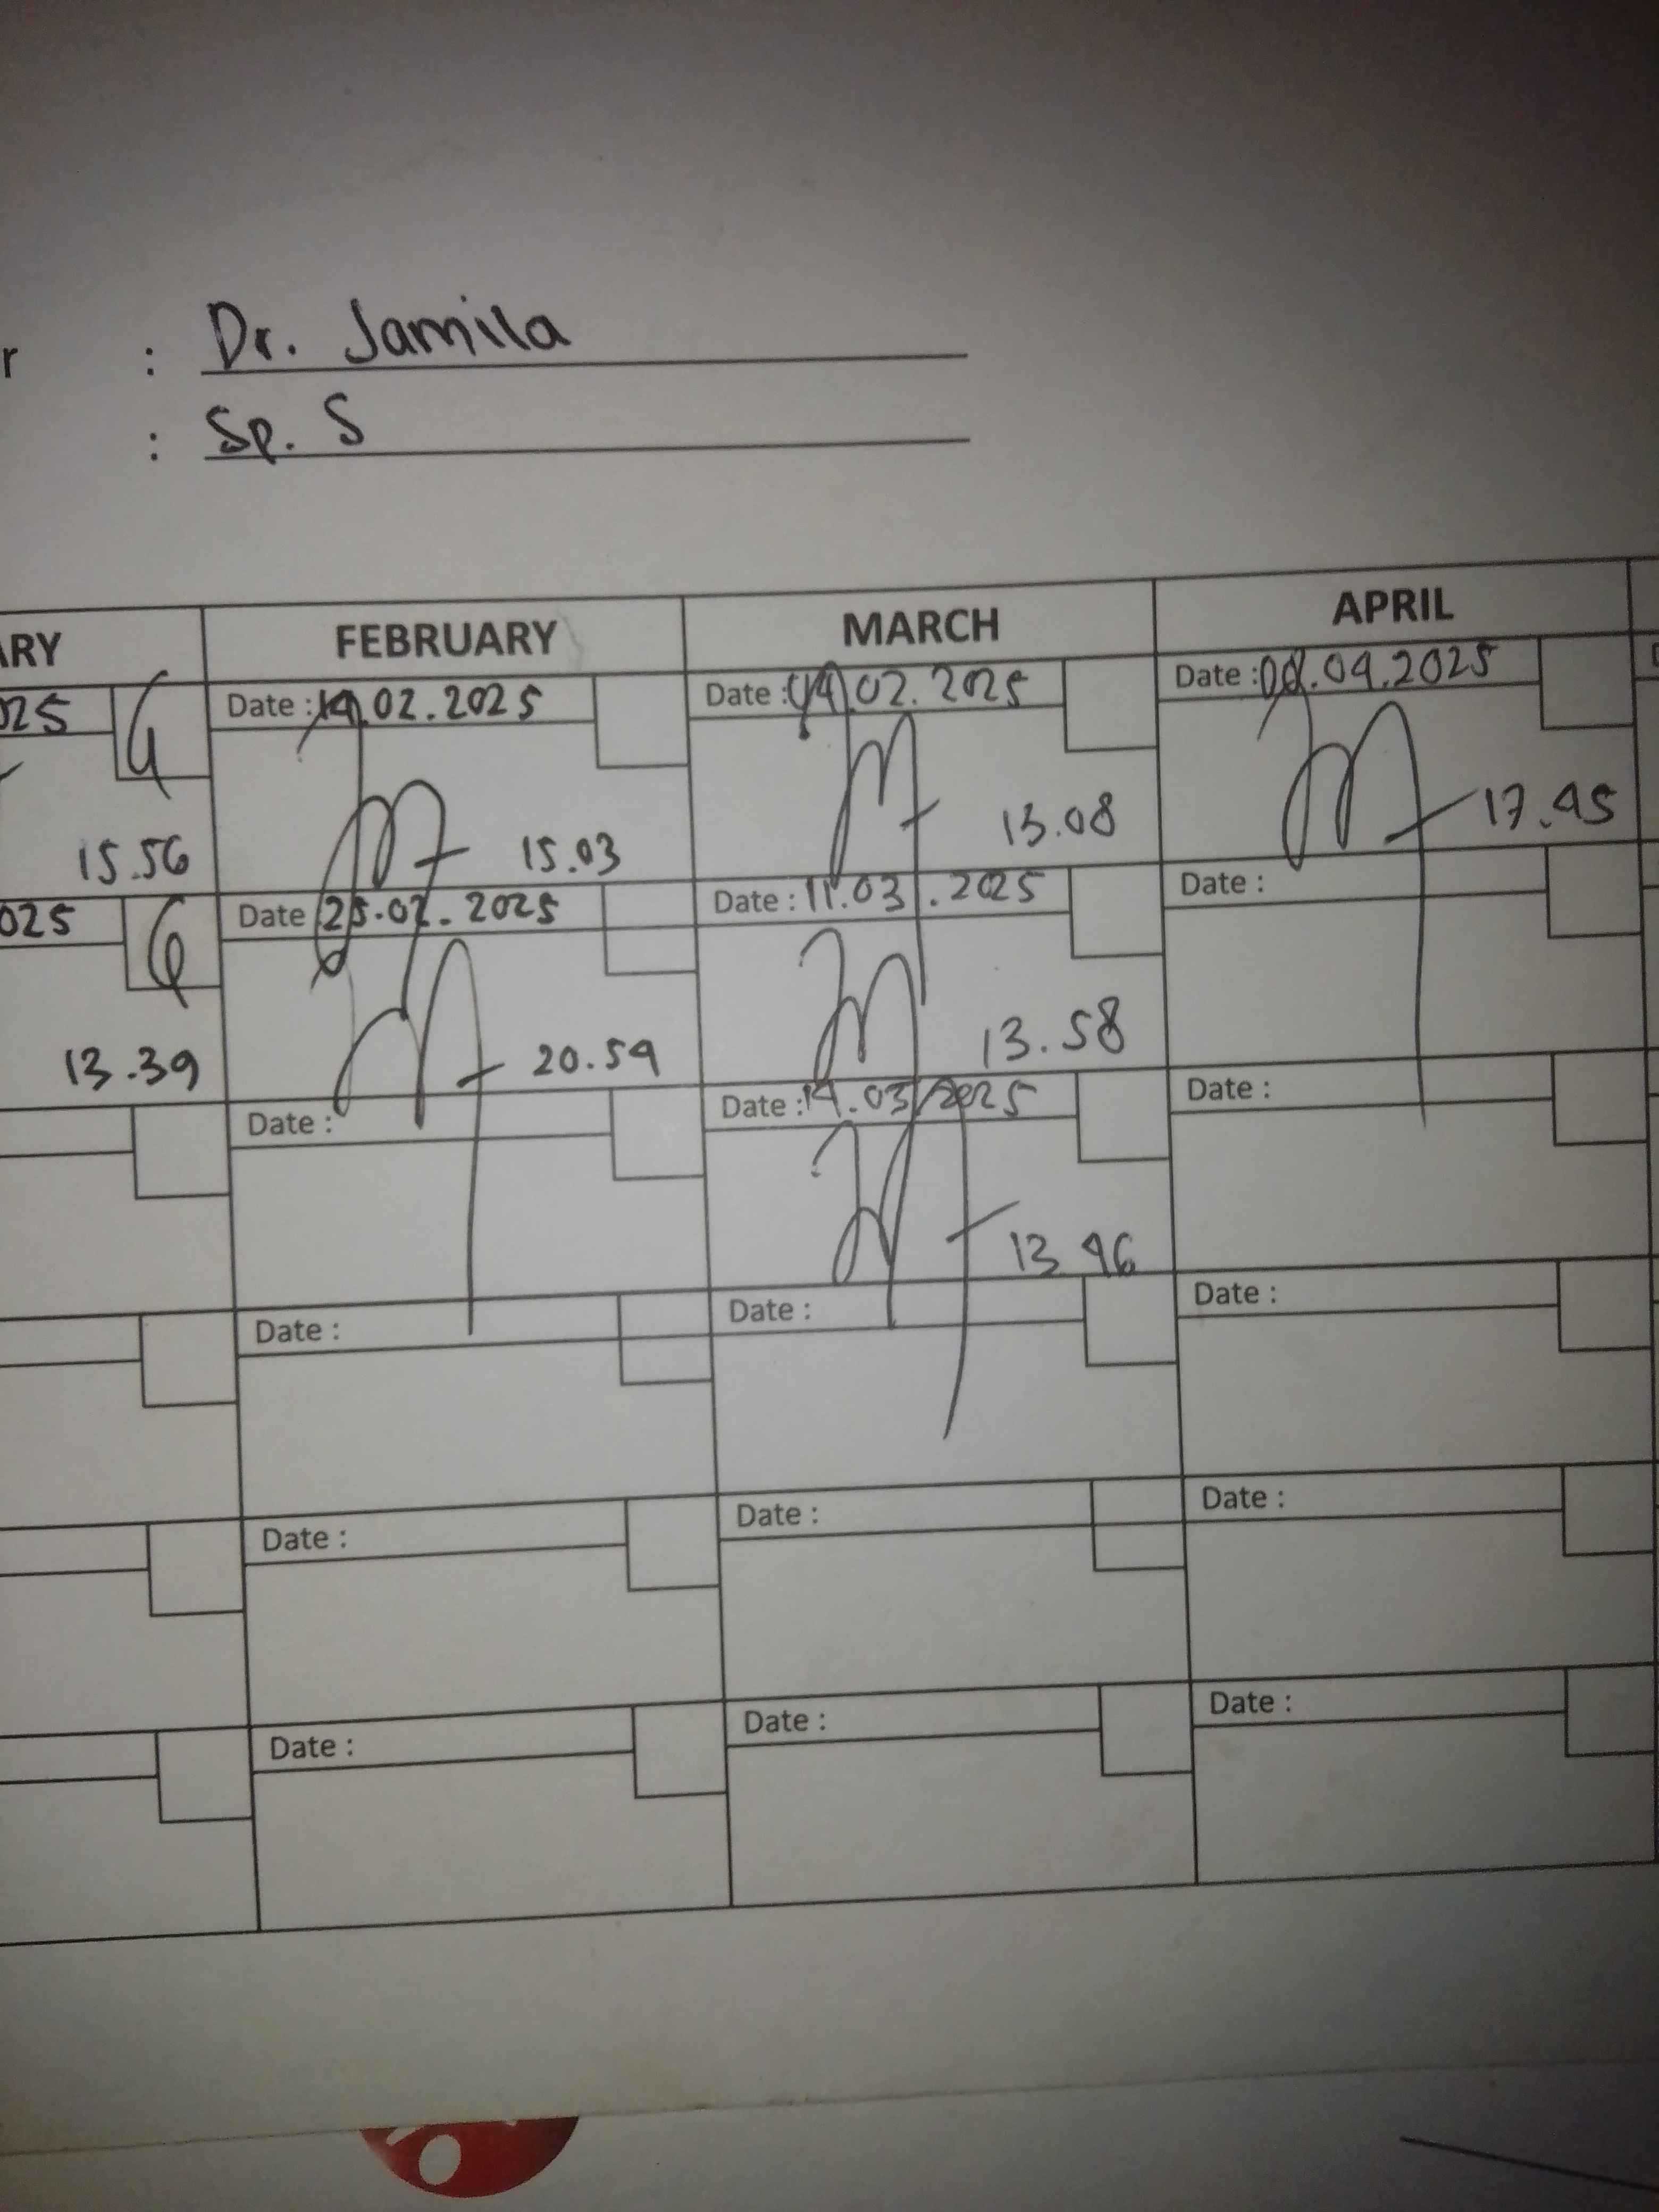 r : Dr. Jamila
: Sp. S
ARY FEBRUARY MARCH APRIL
025 Date : 14.02.2025 Date : 04.02.2025 Date : 08.04.2025
15.56 15.03 13.08 17.45
025 Date 25.02.2025 Date : 11.03.2025 Date :
13.39 20.54 13.58
Date : Date : 14.03.2025 Date :
13 46
Date : Date : Date :
Date : Date : Date :
Date : Date : Date :